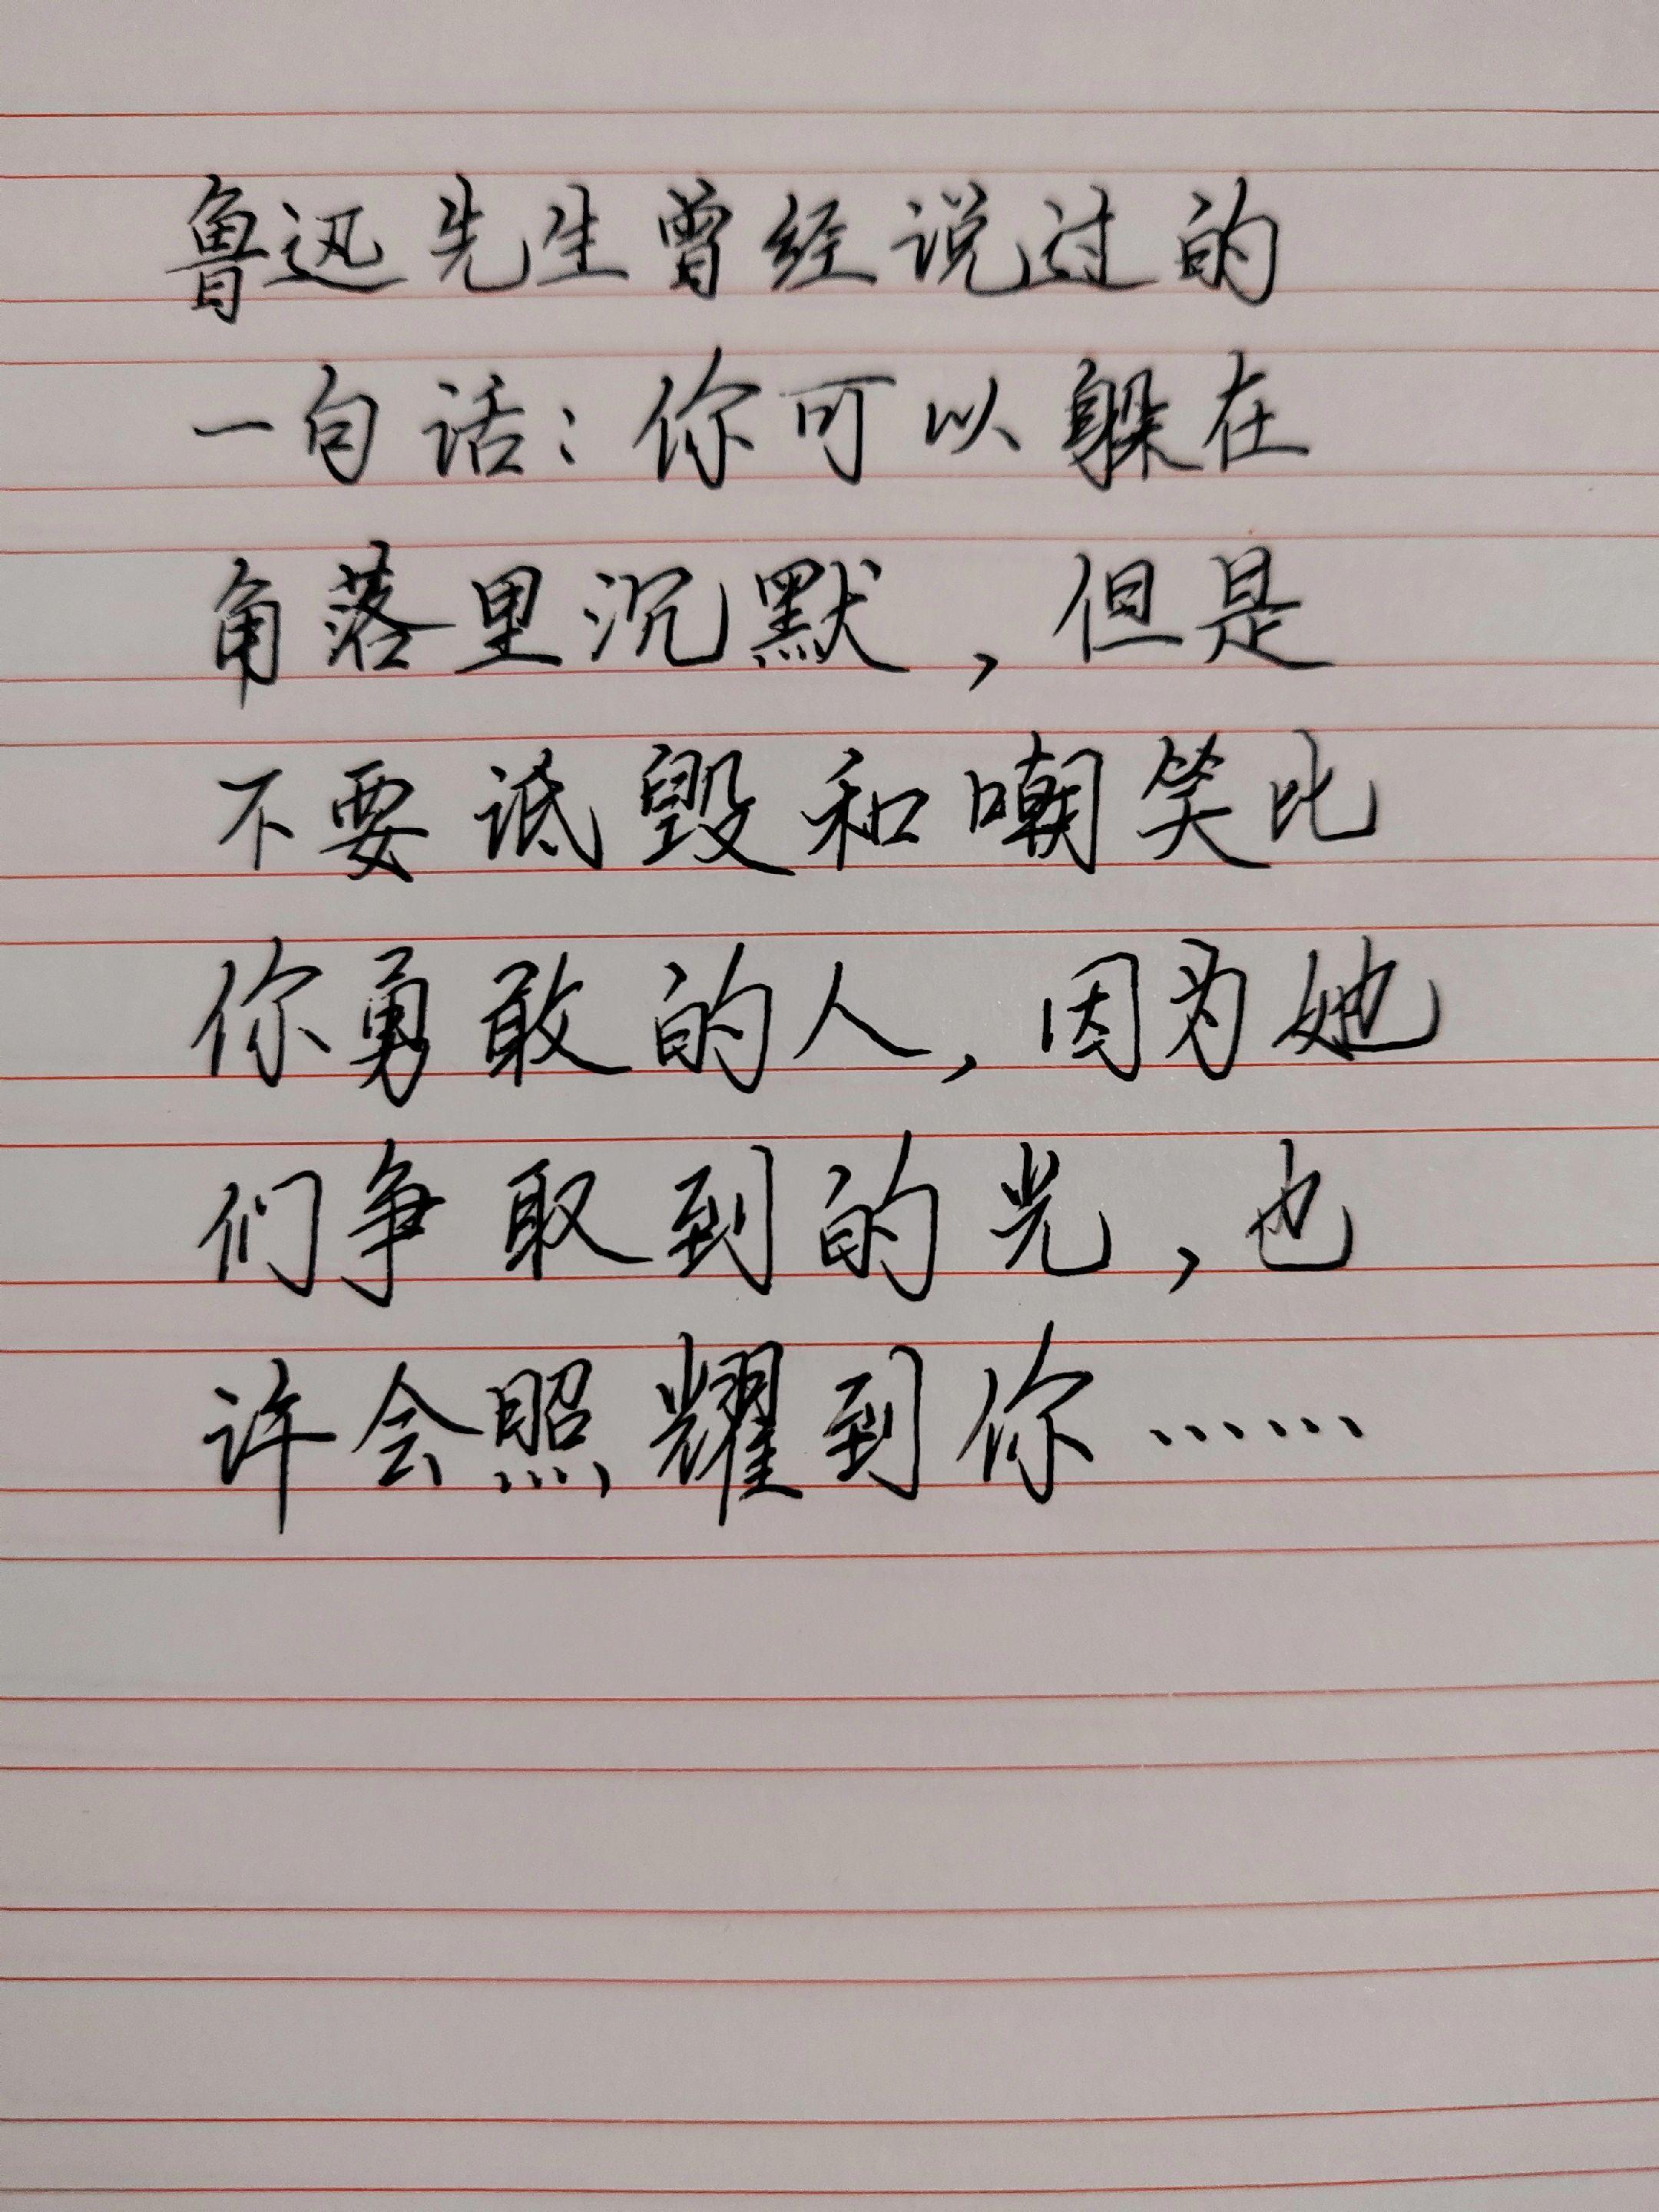 鲁迅先生曾经说过的
一句话：你可以躲在
角落里沉默，但是
不要诋毁和嘲笑比
你勇敢的人，因为她
们争取到的光，也
许会照耀到你……